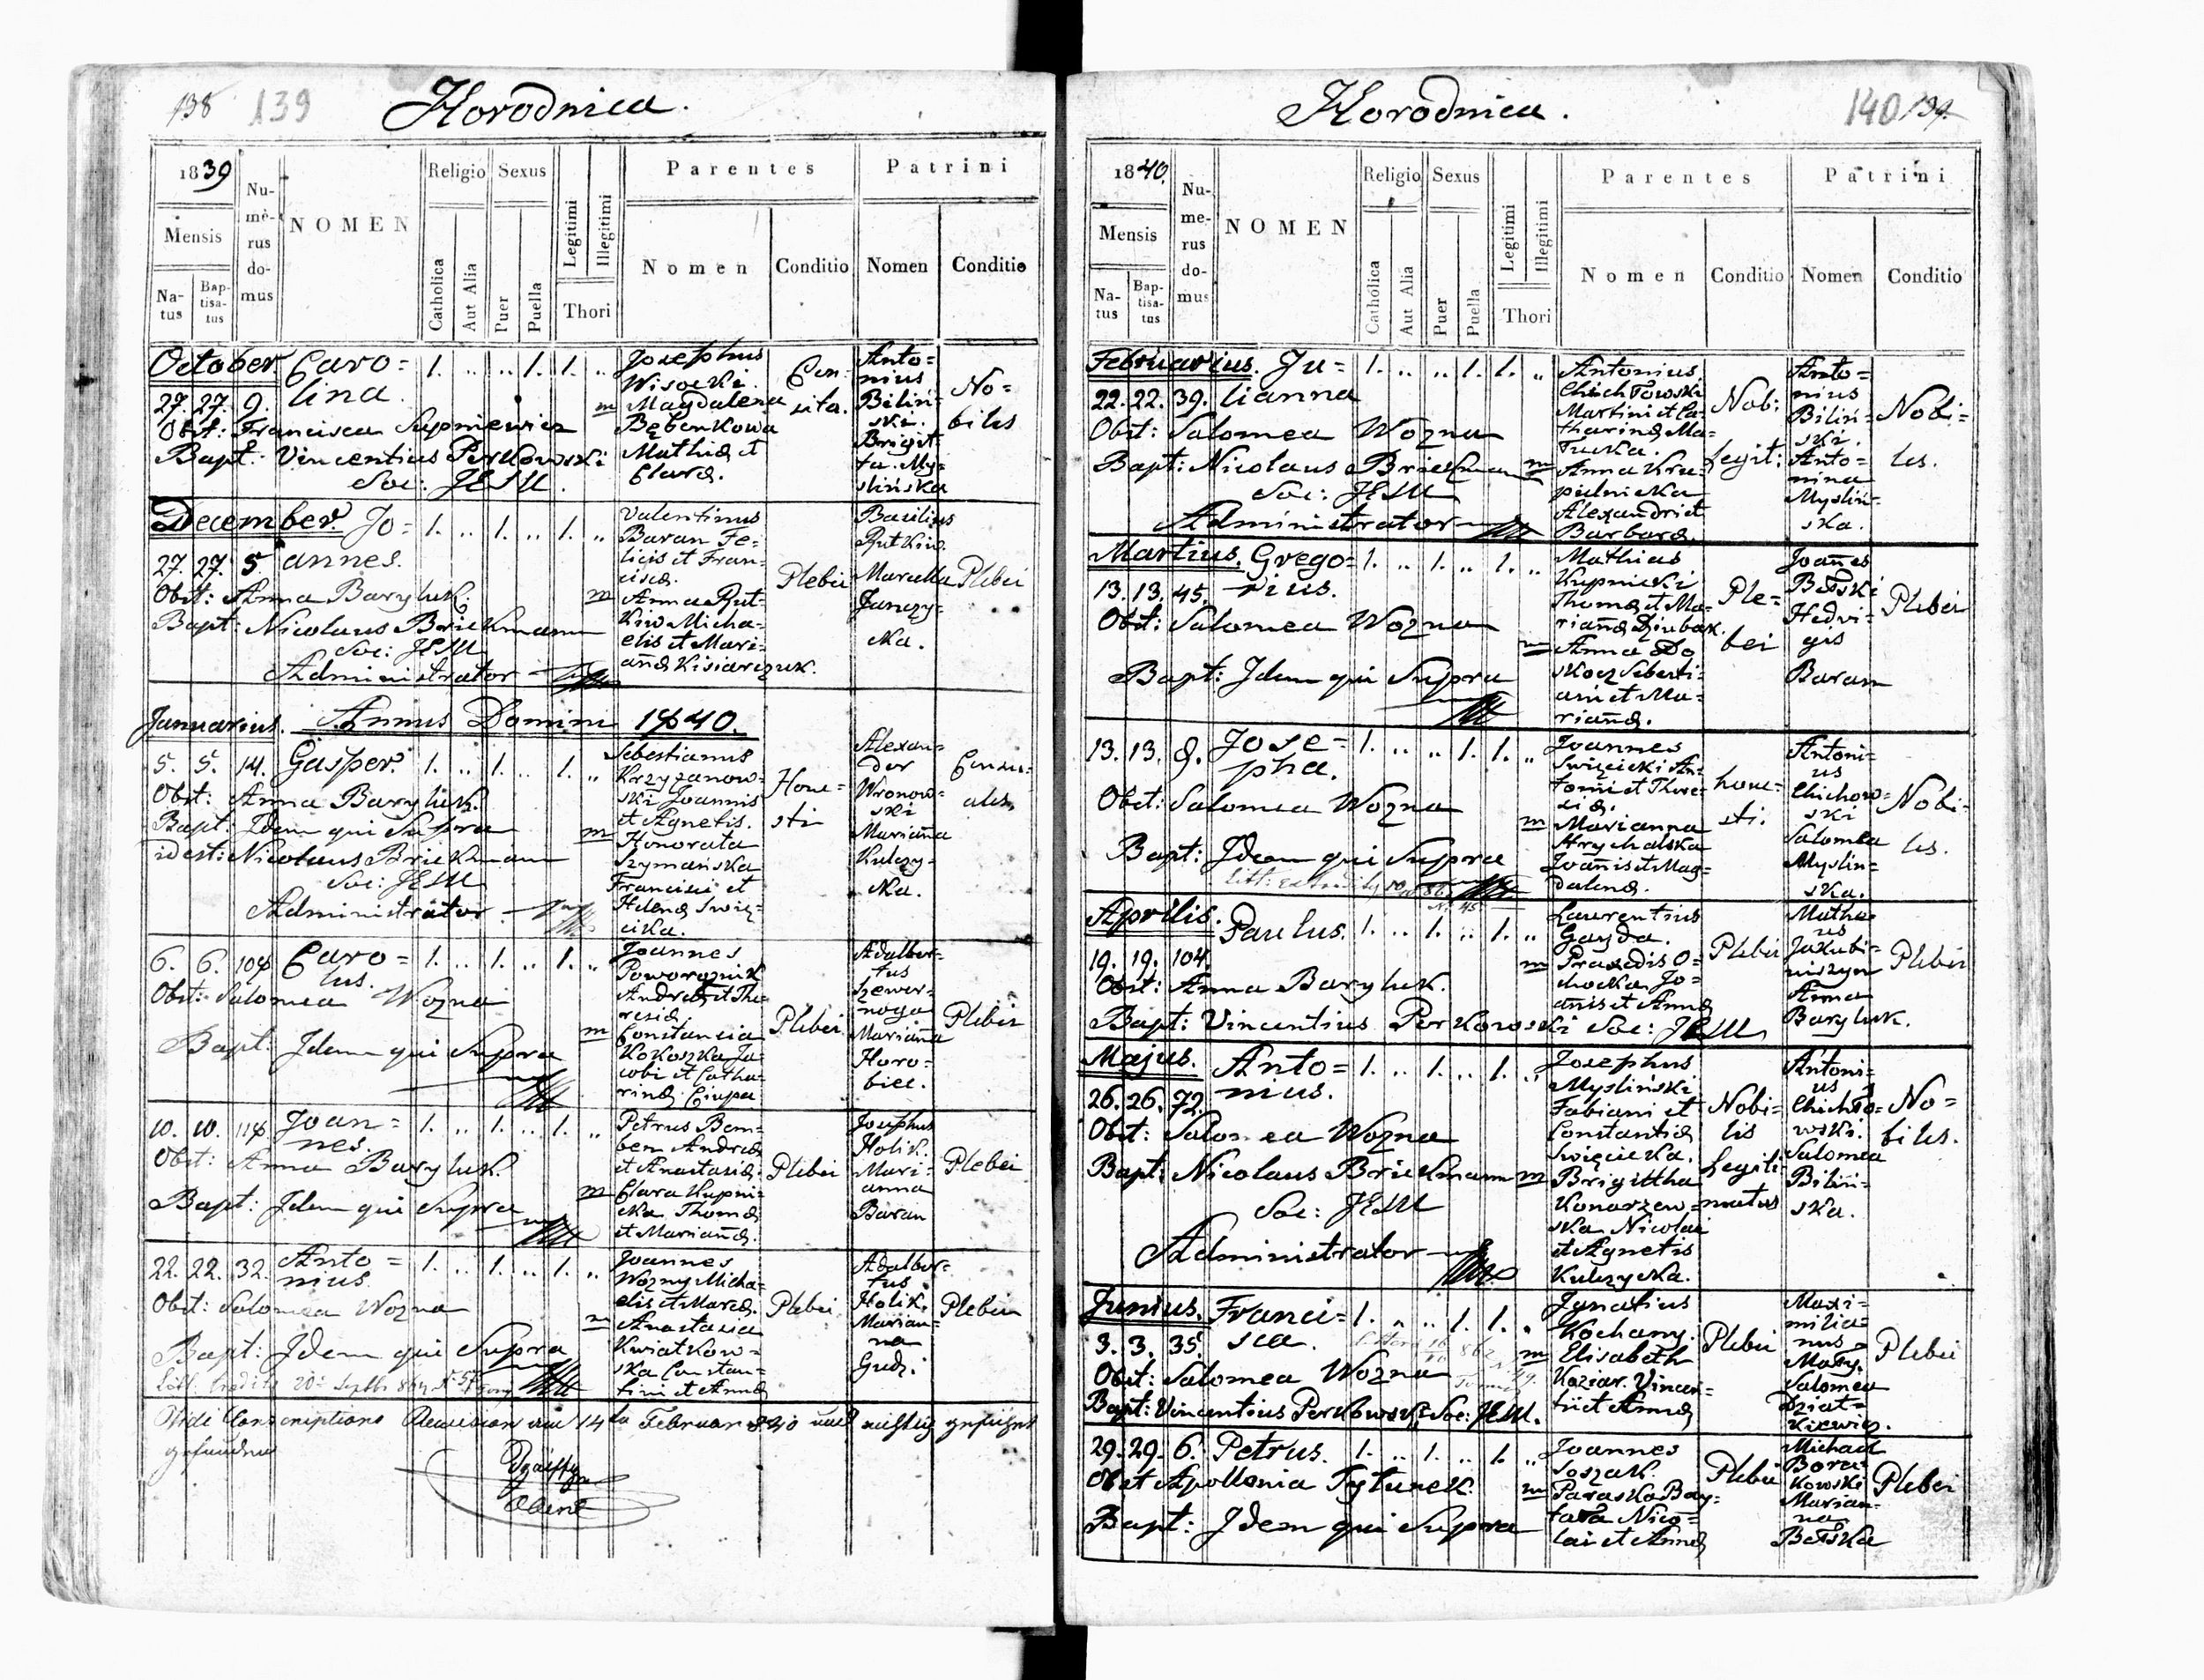 138 139 Horodnica.
1839
Mensis
Natus
Baptisatus
Numerus domus
NOMEN
Religio
Catholica
Aut Alia
Sexus
Puer
Puella
Legitimi
Illegitimi
Thori
Parentes
Nomen
Conditio
Patrini
Nomen
Conditio
October Caro=
lina.
27. 27. 9.
1. .. .. 1. 1. ..
Obst: Francisca Supniewicz
Bapt: Vincentius Perkowski
Soc: JESU.
Josephus
Wisocki.
m Magdalena
Bębenkowa
Mathiæ et
Claræ.
Con-
sita.
Anto=
nius
Biliń=
ski.
Brigit=
ta My=
slińska
No=
biles
December. Jo=
annes.
27. 27. 5
1. .. 1. .. 1. ..
Obst: Anna Baryluk.
Bapt: Nicolaus Brickmann
Soc: JESU
Administrator
Valentinus
Baran Fe=
licis et Fran=
ciscæ.
m Anna Rut=
kiw Micha=
elis et Mari=
anæ Kisiarczuk.
Plebei
Basilius
Rutkiw.
Marcella
Janczy=
cka.
Plebei
Januarius. Annus Domini 1840.
5. 5. 14. Gasper. 1. .. 1. .. 1. ..
Obst: Anna Baryluk.
Bapt: Idem qui Supra
idest: Nicolaus Brickmann
Soc: JESU
Administrator.
Sebestianus
Krzyzanow=
ski Joannis
et Agnetis.
m Honorata
Szymańska
Francisci et
Helenæ Swię=
cicka.
Hone=
sti
Alexan=
der
Wronow=
ski
Marianna
Kulczy=
cka.
6. 6. 104 Caro=
lus.
1. .. 1. .. 1. ..
Obst: Salomea Wozna
Bapt: Idem qui Supra
Joannes
Poworoznik
Andreæ et The=
resiæ.
m Constancia
Kokoszka Ja=
cobi et Catha=
rinæ Ciupa.
Plebei
Adalber=
tus
Szewer=
noga
Marianna
Horo=
biec.
Plebei
10. 10. 114 Joan=
nes.
1. .. 1. .. 1. ..
Obst: Anna Baryluk.
Bapt: Idem qui Supra
Petrus Bem=
ben Andreæ
et Anastasiæ.
m Clara Kupni=
cka Thomæ
et Mariannæ.
Plebei
Josephus
Holik.
Mari=
anna
Baran
Plebei
22. 22. 32. Anto=
nius.
1. .. 1. .. 1. ..
Obst: Salomea Wozna
Bapt: Idem qui Supra
Joannes
Wozny Micha=
elis et Mariæ.
m Anastasia
Kwiatkow=
ska Constan=
tini et Annæ
Plebei
Adalber=
tus
Holik.
Marian=
na
Gudz.
Plebei
Conscriptions Revision am 14ten Februar 840 und richtig geführt
gefunden
Horodnica. 140 139.
1840.
Mensis
Natus
Baptisatus
Numerus domus
NOMEN
Religio
Catholica
Aut Alia
Sexus
Puer
Puella
Legitimi
Illegitimi
Thori
Parentes
Nomen
Conditio
Patrini
Nomen
Conditio
Februarius. Ju=
22. 22. 39. lianna
1. .. .. 1. 1. ..
Obst: Salomea Wozna
Bapt: Nicolaus Brickmann
Soc: JESU
Administrator
Antonius
Chichłowski
Martini et Ca=
tharinæ Ma=
łucka.
m Anna Kru=
pielnicka
Alexandri et
Barbaræ.
Nob:
Legit:
Anto=
nius
Biliń=
ski.
Anto=
nina
Myslin=
ska.
Nobi=
les.
Martius. Grego=
13. 13. 45. rius.
1. .. 1. .. 1. ..
Obst: Salomea Wozna
Bapt: Idem qui Supra
Mathias
Kupnicki
Thomæ et Ma=
riannæ Dziubak.
m Anna Do
skocz Sebasti=
ani et Ma=
riannæ.
Ple=
bei
Joannes
Betski
Hedvi=
gis
Baran
Plebei
13. 13. 8. Jose=
pha.
1. .. .. 1. 1. ..
Obst: Salomea Wozna
Bapt: Idem qui Supra
Joannes
Swięcicki An=
tonii et There=
siæ.
m Marianna
Strychalska
Joannis et Mag=
dalenæ.
hone=
sti.
Antoni=
us
Chichow=
ski
Salomea
Myslin=
ska.
Nobi=
les.
Aprilis. Paulus.
19. 19. 104.
1. .. 1. .. 1. ..
Obst: Anna Baryluk.
Bapt: Vincentius Perkowski Soc: JESU
Laurentius
Gayda.
m Praxedis O=
chocka Jo=
annis et Annæ
Plebei
Mathe
us
Jakubi=
niszyn
Anna
Baryluk.
Plebei
Majus. Anto=
26. 26. 72. nius.
1. .. 1. .. 1. ..
Obst: Salomea Wozna
Bapt: Nicolaus Brickmann
Soc: JESU
Administrator
Josephus
Mysliński
Fabiani et
Constantiæ
Swięcicka.
m Brigittha
Konarzew=
ska Nicolai
et Agnetis
Kulczycka.
Nobi=
lis
Legiti=
matus
Antoni=
us
Chichło=
wski.
Salomea
Biliń=
ska.
No=
biles.
Junius. Franci=
3. 3. 35. sca.
1. .. .. 1. 1. ..
Obst: Salomea Wozna
Bapt: Vincentius Perkowski Soc: JESU.
Ignatius
Kochany.
m Elisabeth
Koziar. Vincen=
tii et Annæ
Plebei
Maxi=
milia=
nus
Mały.
Salomea
Dziat=
kiewicz.
Plebei
29. 29. 6. Petrus. 1. .. 1. .. 1. ..
Obst Apollonia Tytunek.
Bapt: Idem qui Supra
Joannes
Soszak.
m Paraska Bay=
tała Nico=
lai et Annæ
Plebei
Michael
Bora=
kowski
Marian=
na
Betska
Plebei